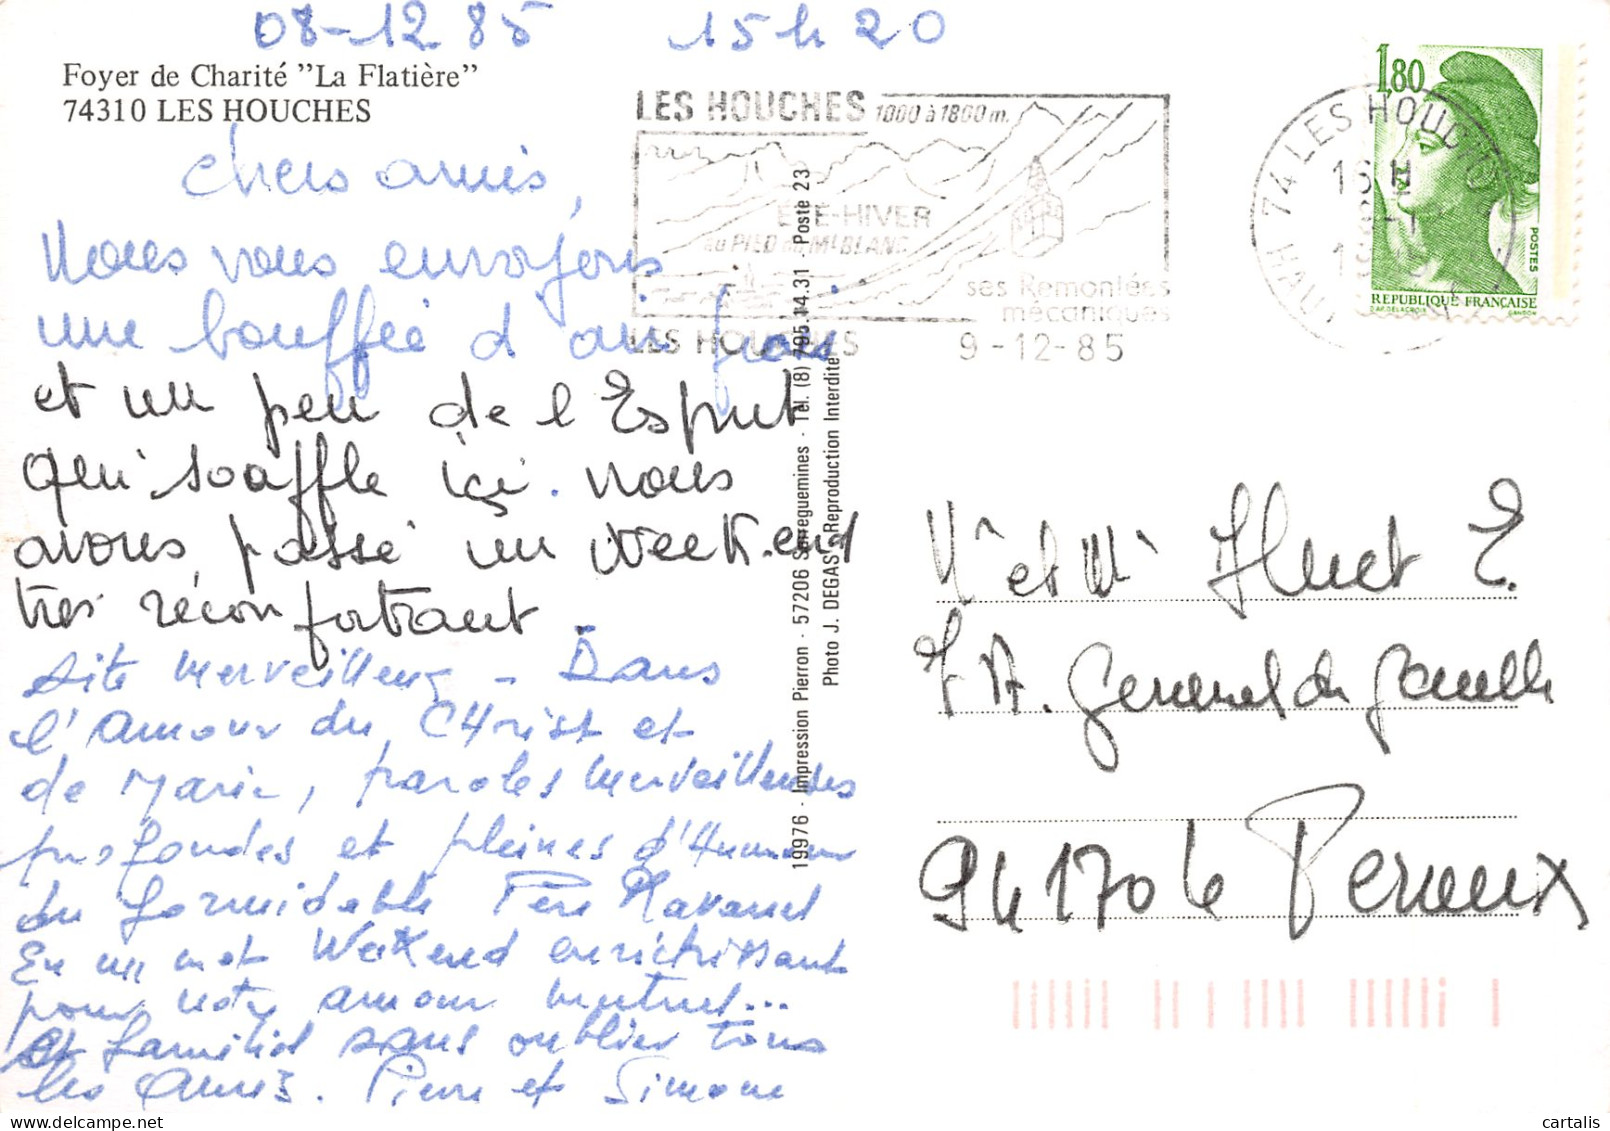 08-12 85 15h 20
Foyer de Charité "La Flatière"
74310 LES HOUCHES
chers amis,
Nous vous envoyons
une bouffée d air frais
et un peu de l Esprit
qui souffle içi. nous
avons passé un week.end
très réconfortant.
site merveilleux - Dans
l'amour du CHrist et
de Marie, paroles merveilleuses
profondes et pleines d'Humour
du formidable Père Ravanel
En un mot Weekend enrichissant
pour notre amour mutuel...
et familial sans oublier tous
les amis. Pierre et Simone
LES HOUCHES 1000 à 1860 m.
ETE-HIVER
au PIED du Mt BLANC
ses Remontées
mécaniques
LES HOUCHES 9-12-85
74 LES HOUCHES
16 H
HAUTE
1,80
POSTES
REPUBLIQUE FRANÇAISE
D'AP. DELACROIX GANDON
19976 · Impression Pierron · 57206 Sarreguemines · Tél. (8) 795.14.31 · Poste 23
Photo J. DEGAS Reproduction Interdite
Mr et Me Huet E.
A. General de Gaulle
94170 le Perreux
cartalis